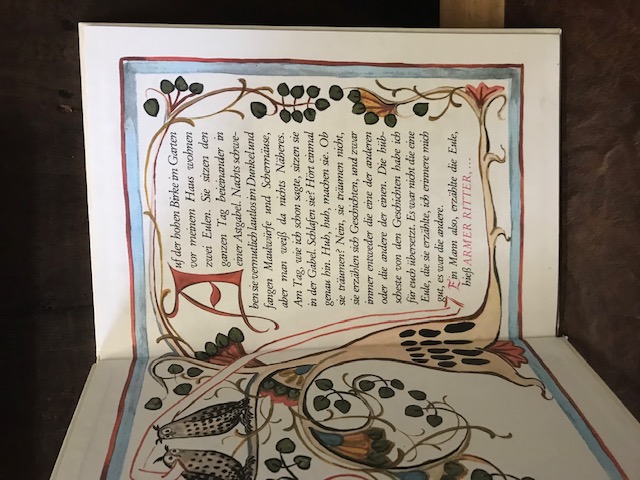 Auf der hohen Birke im Garten
vor meinem Haus wohnen
zwei Eulen. Sie sitzen den
ganzen Tag beieinander in
einer Astgabel. Nachts schwe-
ben sie vermutlich lautlos im Dunkel und
fangen Maulwürfe und Schermäuse,
aber man weiß da nichts Näheres.
Am Tag, wie ich schon sagte, sitzen sie
in der Gabel. Schlafen sie? Hört einmal
genau hin. Huh, huh, machen sie. Ob
sie träumen? Nein, sie träumen nicht,
sie erzählen sich Geschichten, und zwar
immer entweder die eine der anderen
oder die andere der einen. Die hüb-
scheste von den Geschichten habe ich
für euch übersetzt. Es war nicht die eine
Eule, die sie erzählte, ich erinnere mich
gut, es war die andere.
Ein Mann also, erzählte die Eule,
hieß ARMER RITTER, ...